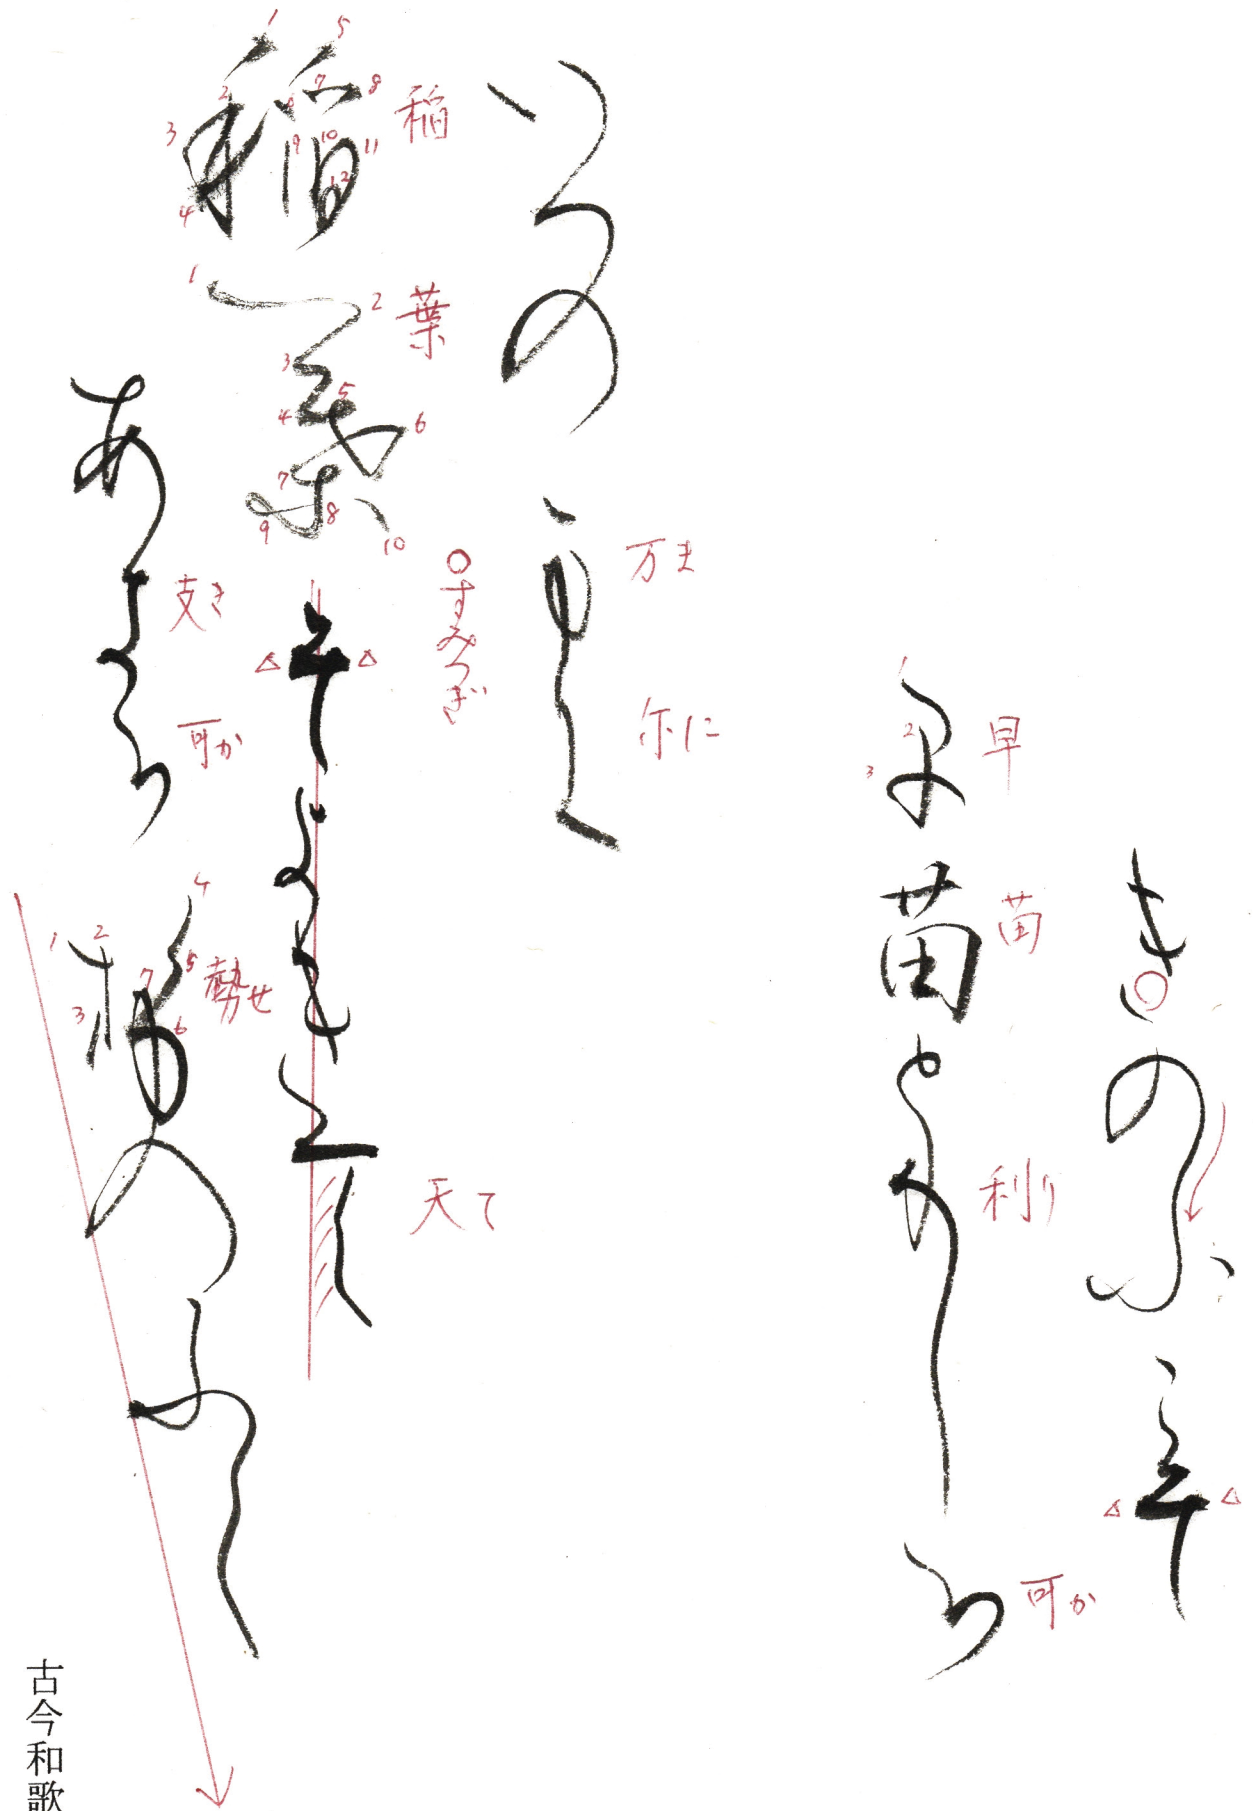 きのふこそ
早苗と利し可
早
苗
利り
可か
いつの万尓
万ま
尓に
稲葉そよき天
稲
葉
○すみつぎ
天て
あ支可勢のふく
支き
可か
勢せ
古今和歌